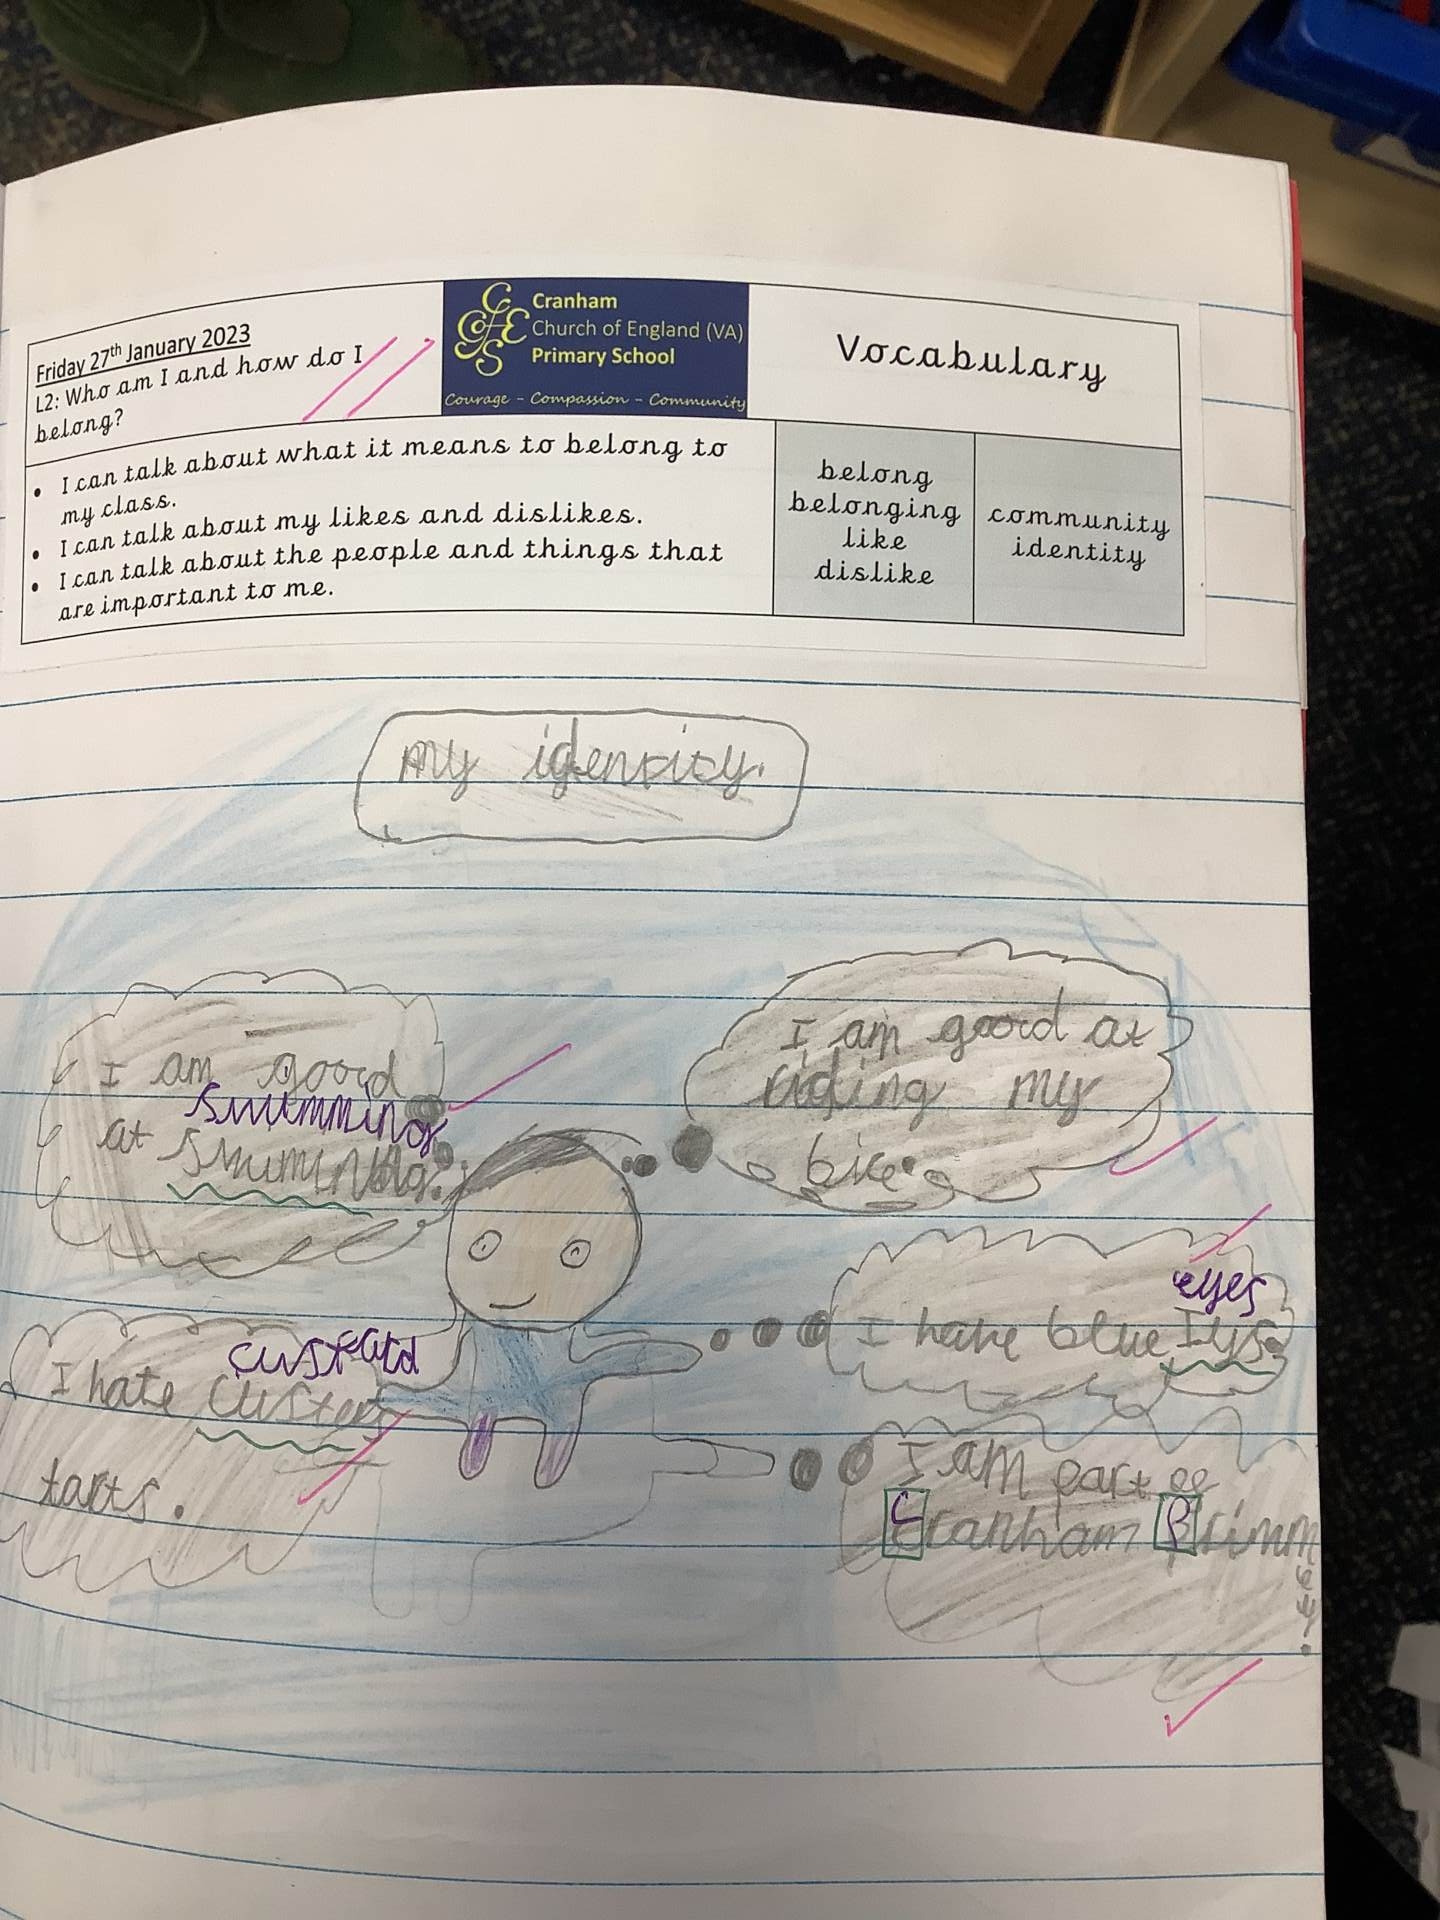 Friday 27th January 2023
L2: Who am I and how do I
belong?
Cranham
Church of England (VA)
Primary School
Courage - Compassion - Community
Vocabulary
• I can talk about what it means to belong to
my class.
• I can talk about my likes and dislikes.
• I can talk about the people and things that
are important to me.
belong
belonging
like
dislike
community
identity
my identity.
I am good
swimming
at
I am good at
riding my
bike.
eyes
I have blue Iys.
custard
I hate
tarts.
I am part of
Cranham Primm